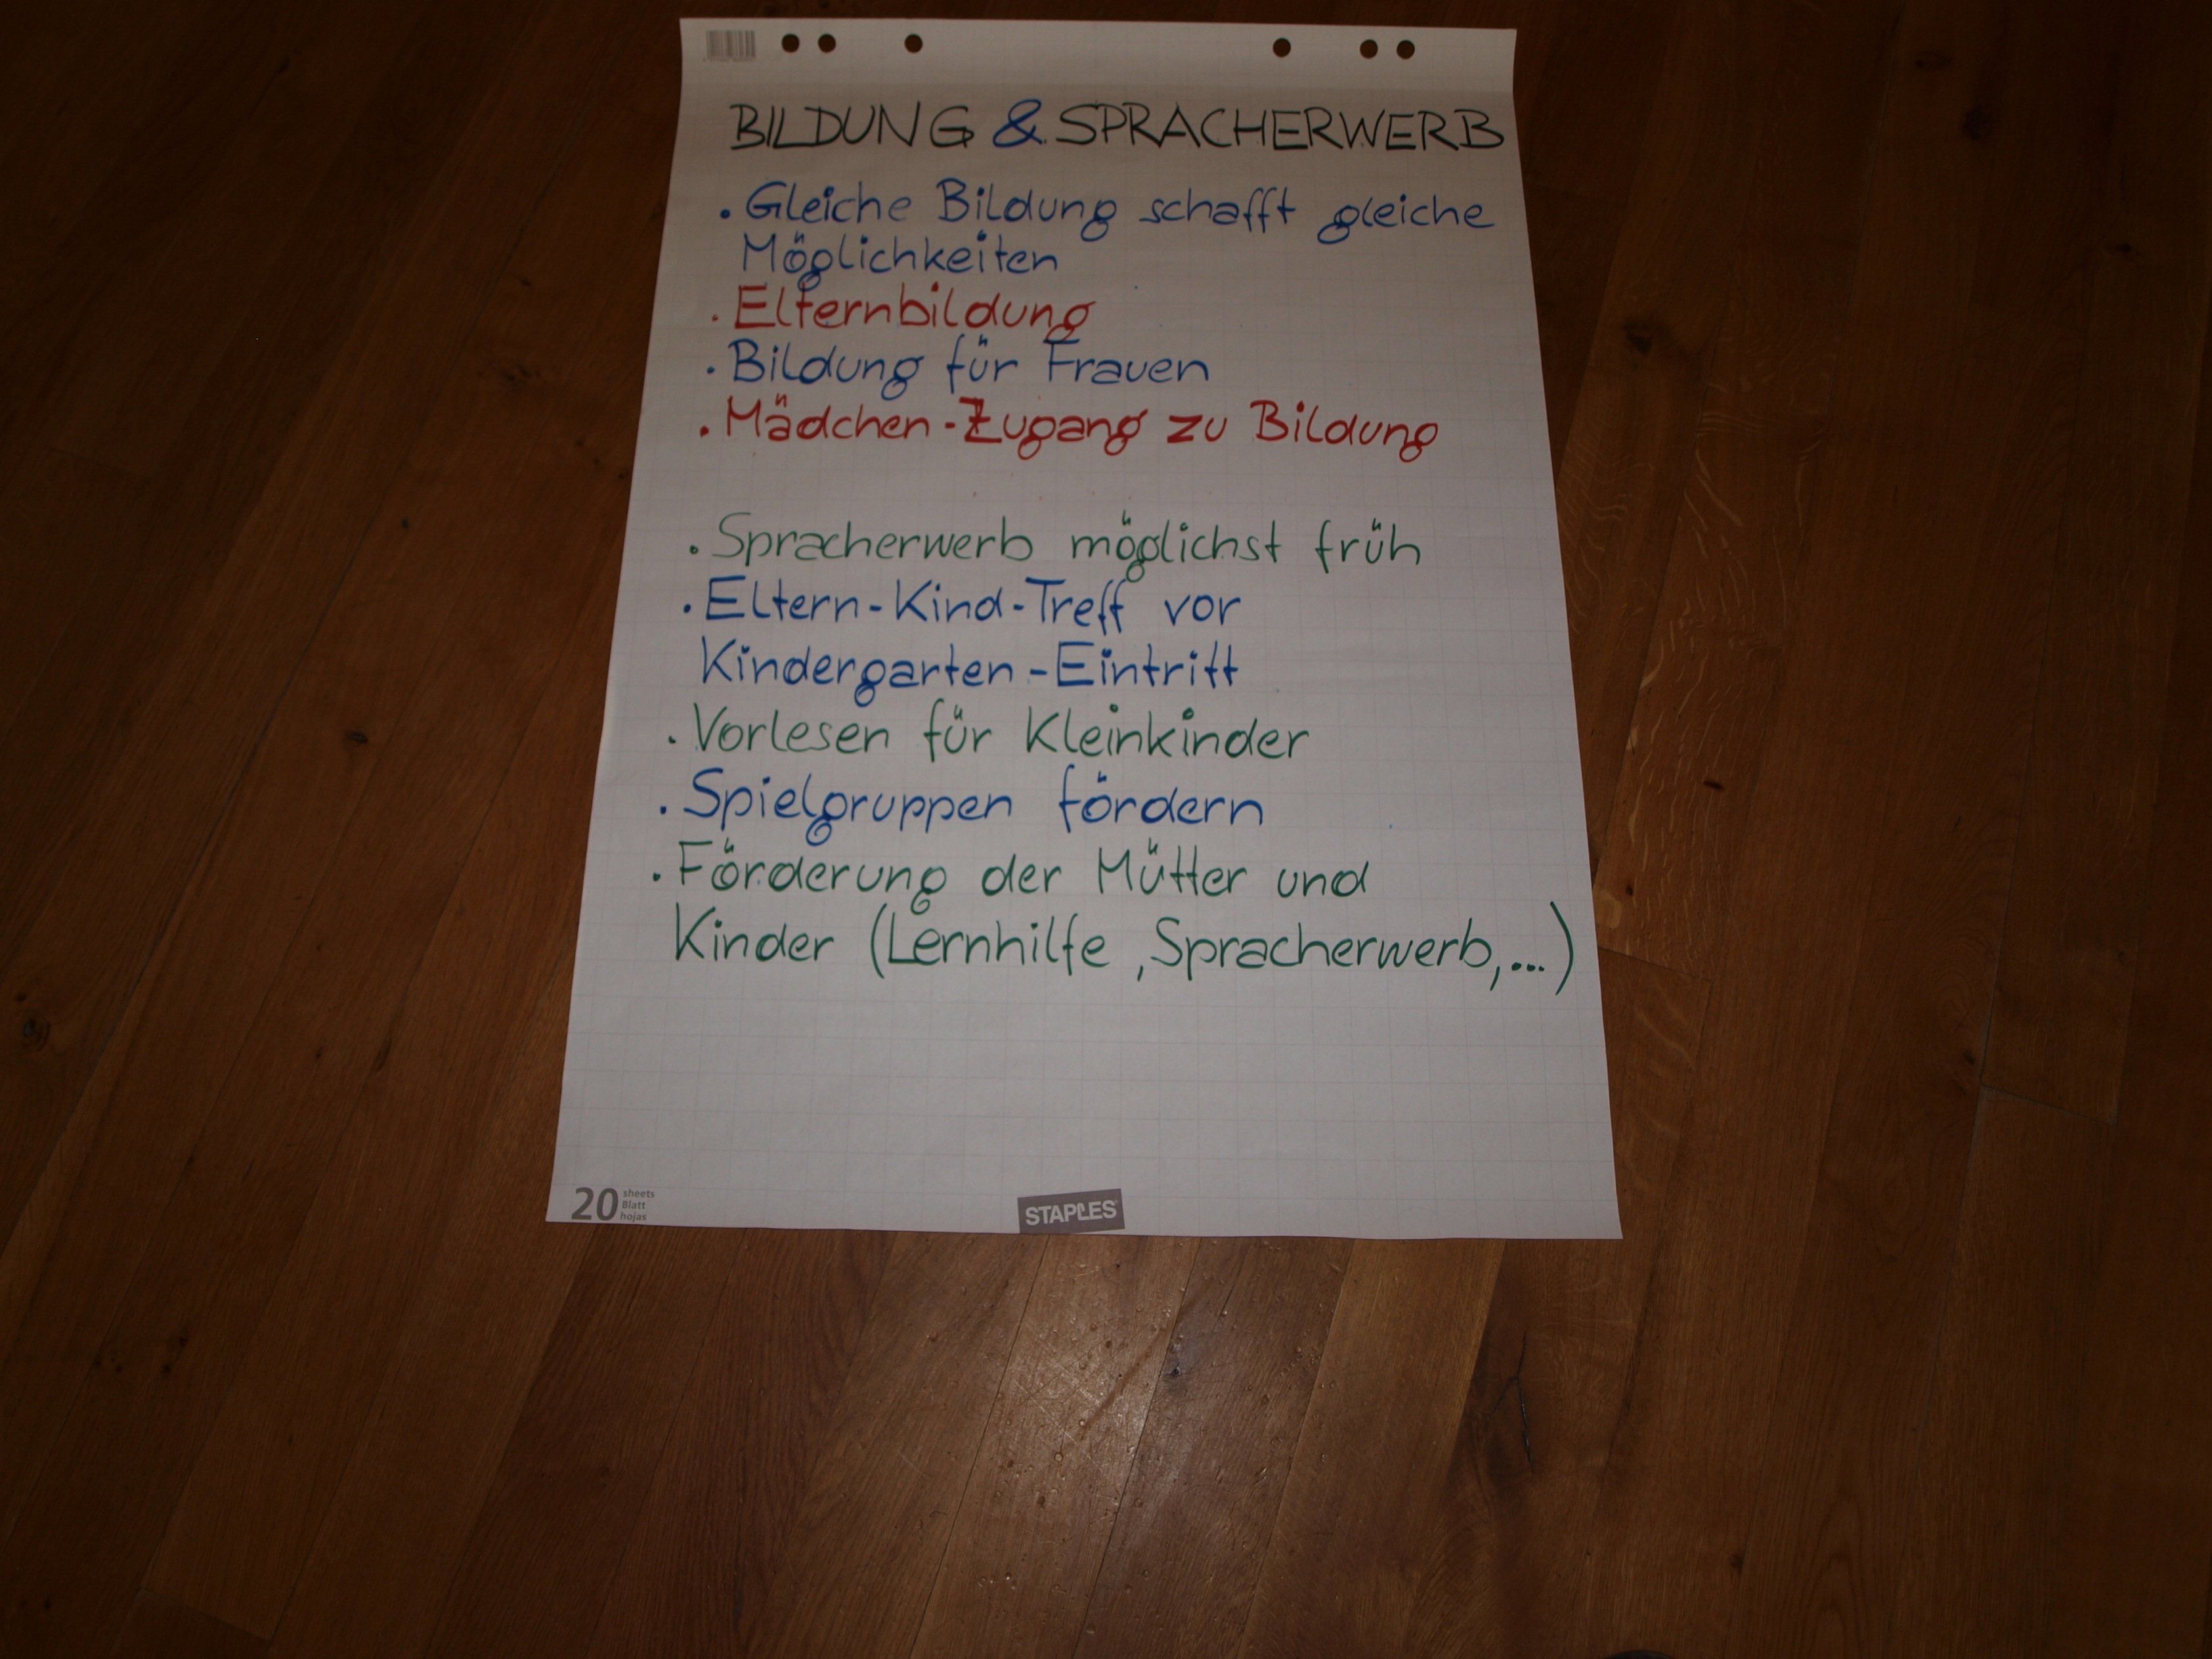 BILDUNG & SPRACHERWERB
• Gleiche Bildung schafft gleiche
Möglichkeiten
• Elternbildung
• Bildung für Frauen
• Mädchen-Zugang zu Bildung
• Spracherwerb möglichst früh
• Eltern-Kind-Treff vor
Kindergarten-Eintritt
• Vorlesen für Kleinkinder
• Spielgruppen fördern
• Förderung der Mütter und
Kinder (Lernhilfe, Spracherwerb,...)
20 sheets
Blatt
hojas
STAPLES